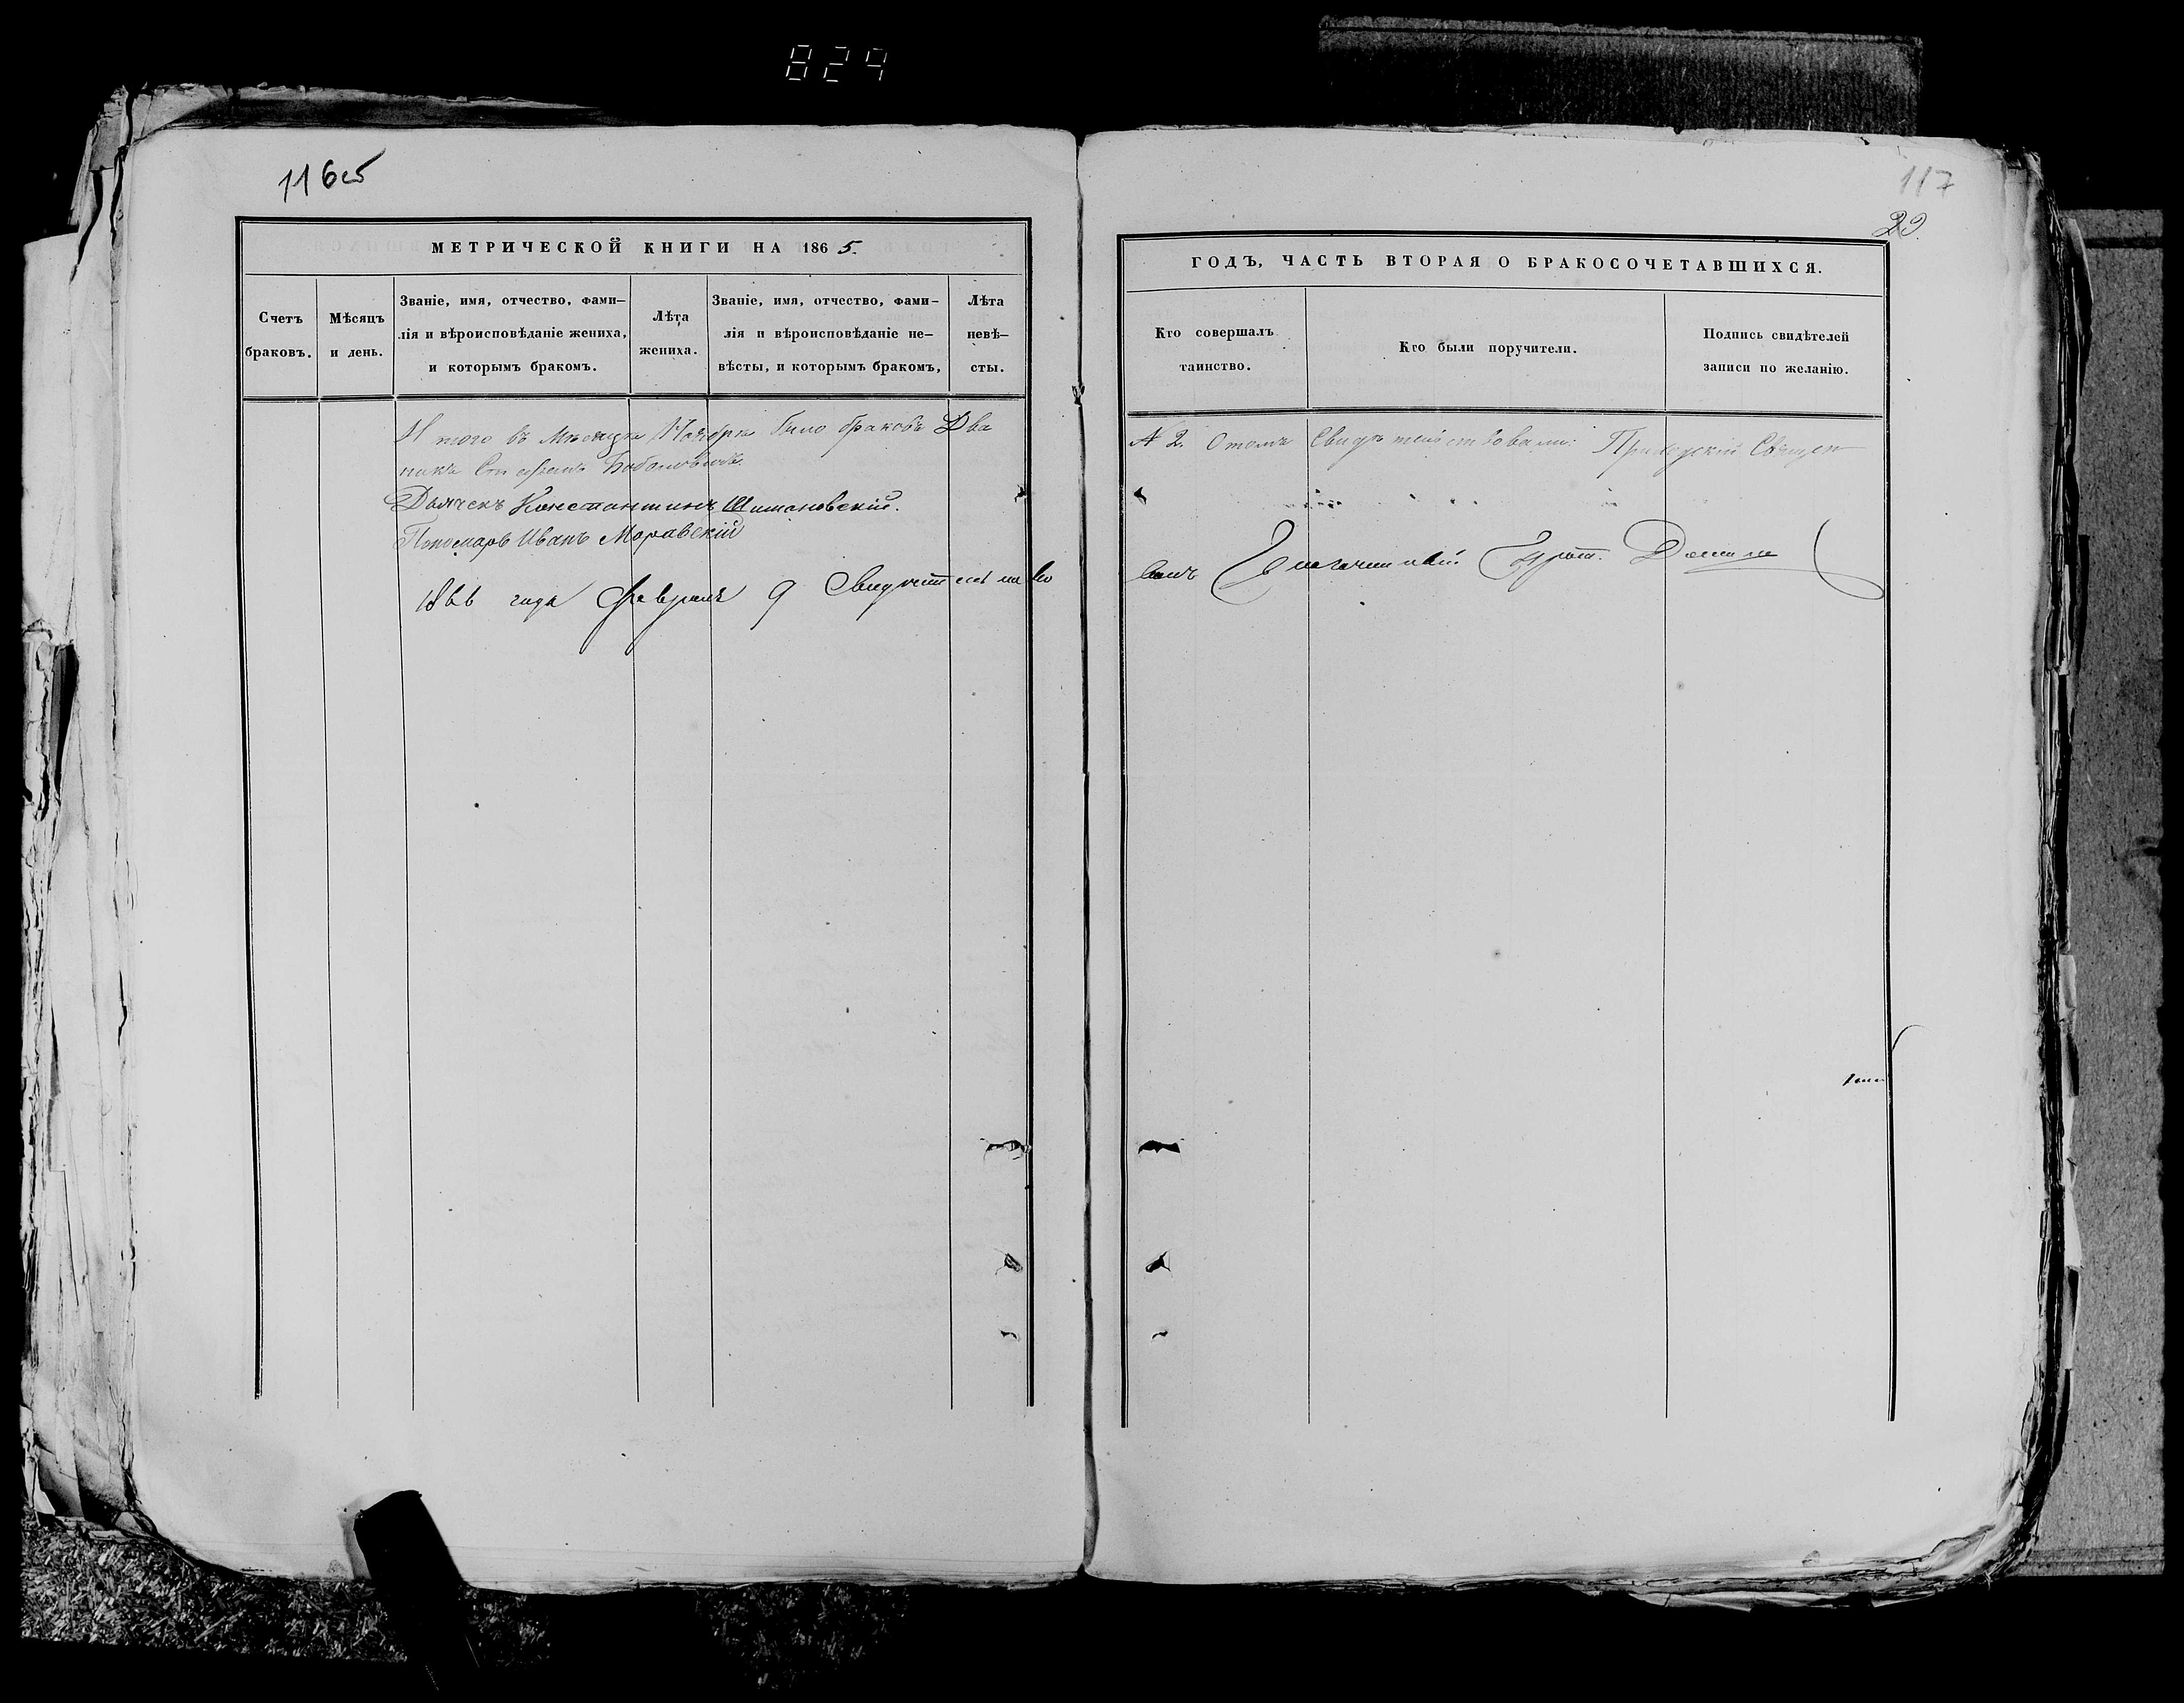 829
116об
МЕТРИЧЕСКОЙ КНИГИ НА 1865.
Счетъ браковъ.
Мѣсяцъ и день.
Званіе, имя, отчество, фами-
лія и вѣроисповѣданіе жениха,
и которымъ бракомъ.
Лѣта жениха.
Званіе, имя, отчество, фами-
лія и вѣроисповѣданіе не-
вѣсты, и которымъ бракомъ,
Лѣта
невѣ-
сты.
Итого въ Мѣсяцѣ Ноябрѣ было браковъ Два
никъ Стефанъ
Дьячекъ Константинъ Шимановскій.
Пономарь Иванъ Моравскій
1866 года Февраля 9 Свидѣтельство
117
29
ГОДЪ, ЧАСТЬ ВТОРАЯ О БРАКОСОЧЕТАВШИХСЯ.
Кто совершалъ
таинство.
Кто были поручители.
Подпись свидѣтелей
записи по желанію.
№ 2. О томъ Свидѣтельствовали: Приходскій Священ
валъ Благочинный Прот.